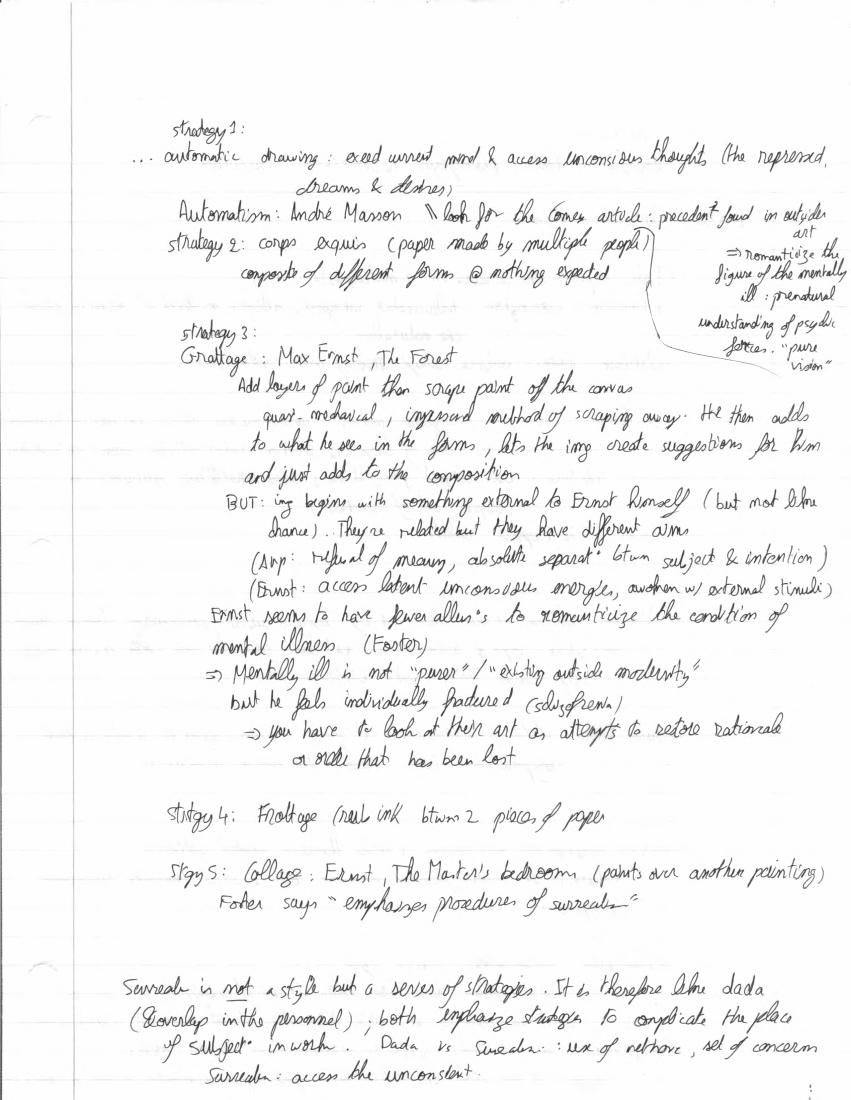 strategy 1:
... automatic drawing : exeed current mind & access unconsious thoughts (the repressed,
dreams & desires)
Automatism: André Masson \\ look for the Comex article : precedent² found in outsider
art
strategy 2: corps exquis (paper made by multiple people)
=> romanticize the
composite of different forms @ nothing expected
figure of the mentally
ill : prenatural
understanding of psychic
forces. "pure
vision"
strategy 3:
Grattage : Max Ernst, The Forest
Add layers of paint than scrape paint off the canvas
quasi-mechanical, method of scraping away. He then adds
to what he sees in the forms, lets the img create suggestions for him
and just adds to the composition
BUT: img begins with something external to Ernst himself (but not like
chance). They're related but they have different aims
(Arp: refusal of meaning, absolute separat° btwn subject & intention)
(Ernst: access latent unconsious energies, awoken w/ external stimuli)
Ernst seems to have fewer allus°s to romanticize the condition of
mental illness (Foster)
=> Mentally ill is not "purer" / "existing outside modernity"
but he feels individually fractured (schizofrenia)
=> you have to look at their art as attempts to restore rationale
or order that has been lost
strtgy 4: Frottage (rub ink btwn 2 pieces of paper
strgy 5: Collage : Ernst, The Master's bedroom (paints over another painting)
Foster says "emphasizes procedures of surrealism"
Surrealism is not a style but a series of strategies. It is therefore like dada
(& overlap in the personnel) ; both emphasize strategies to complicate the place
of subject° in work. Dada vs Surrealism : use of , set of concerns
Surrealism : access the